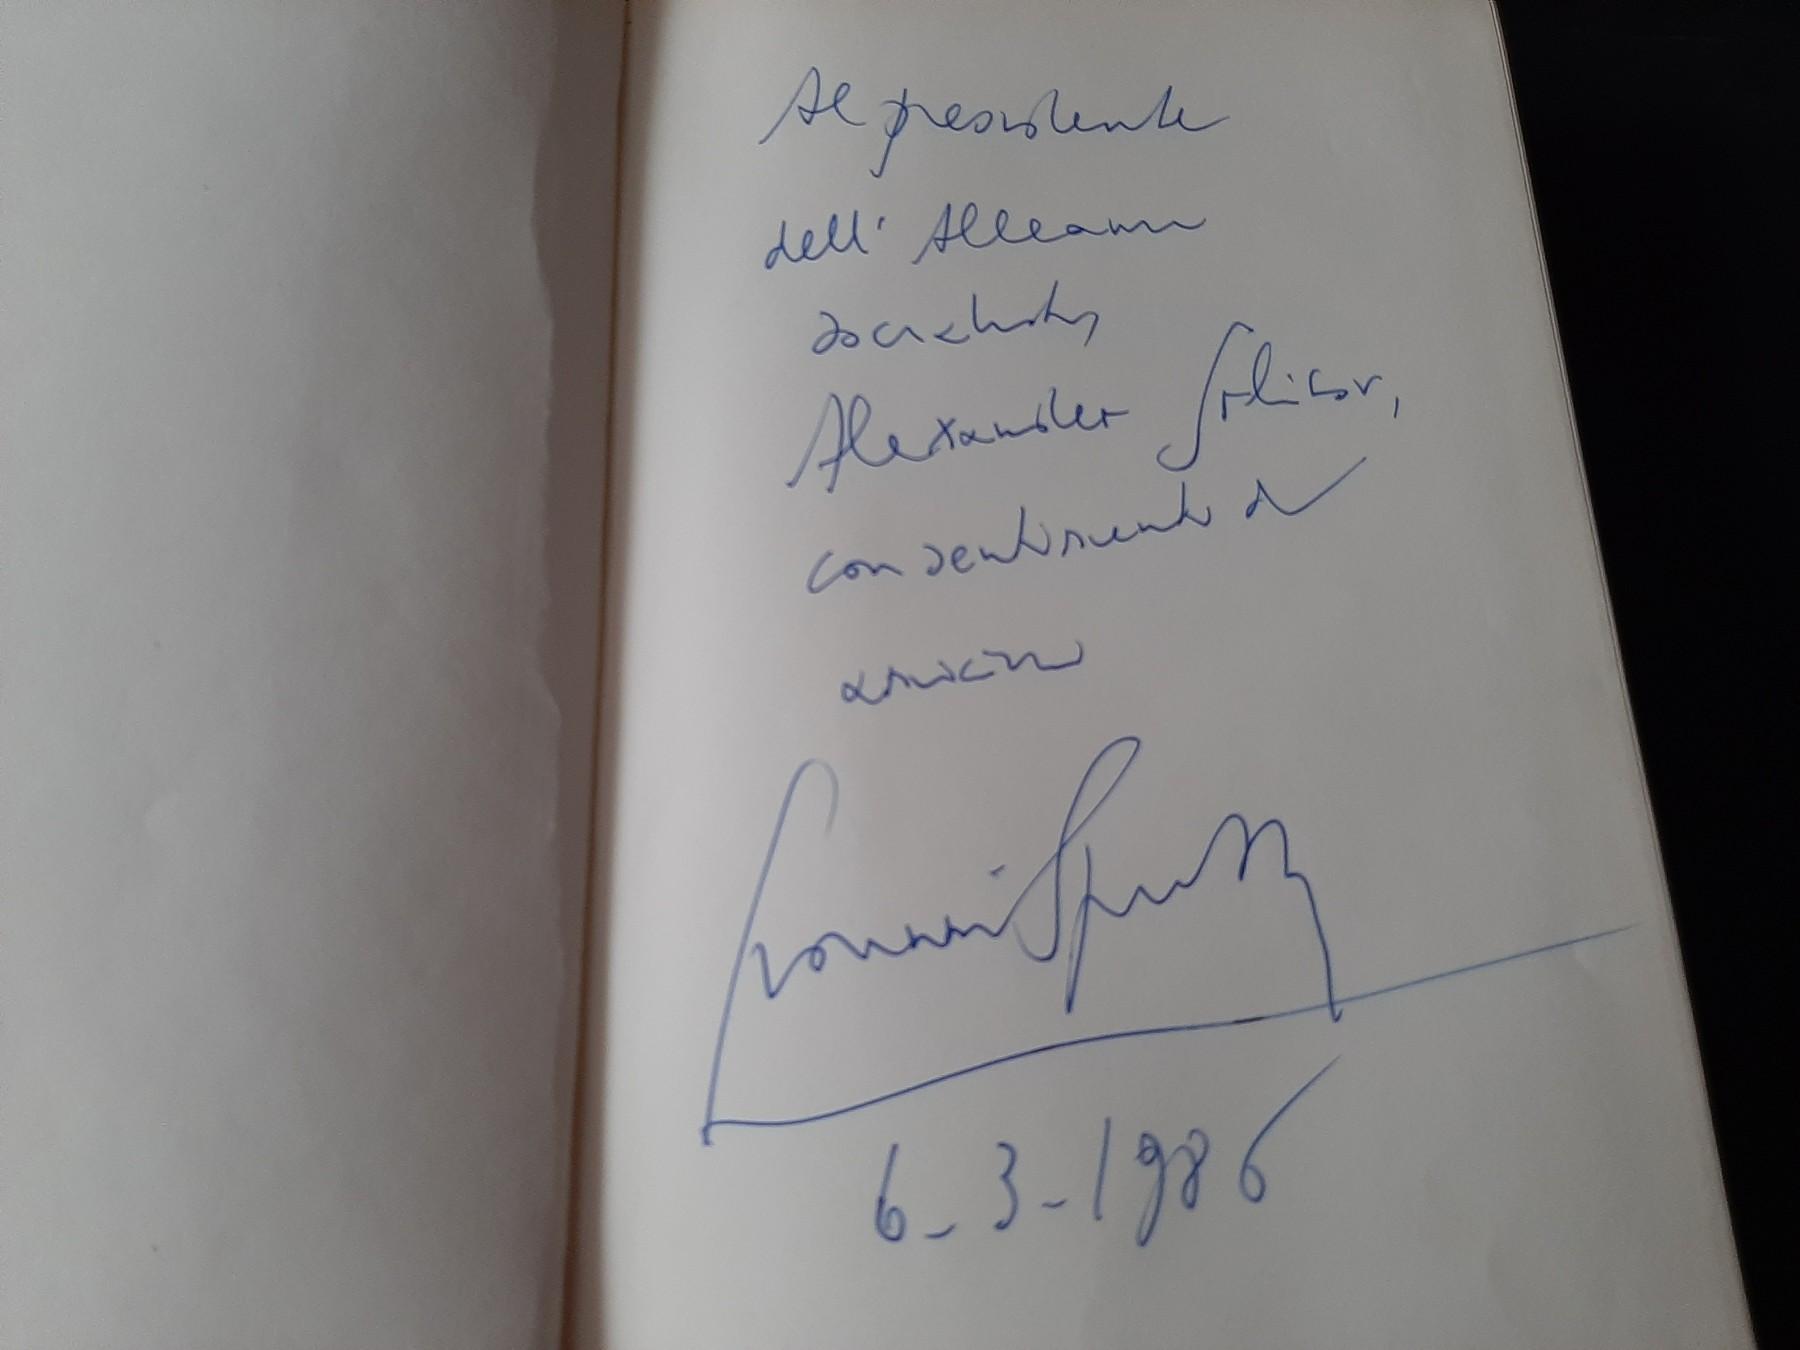 Al presidente
dell' Alleanza
socialista,
Alexander
con sentimento di
amicizia
Giovanni Spadolini
6-3-1986